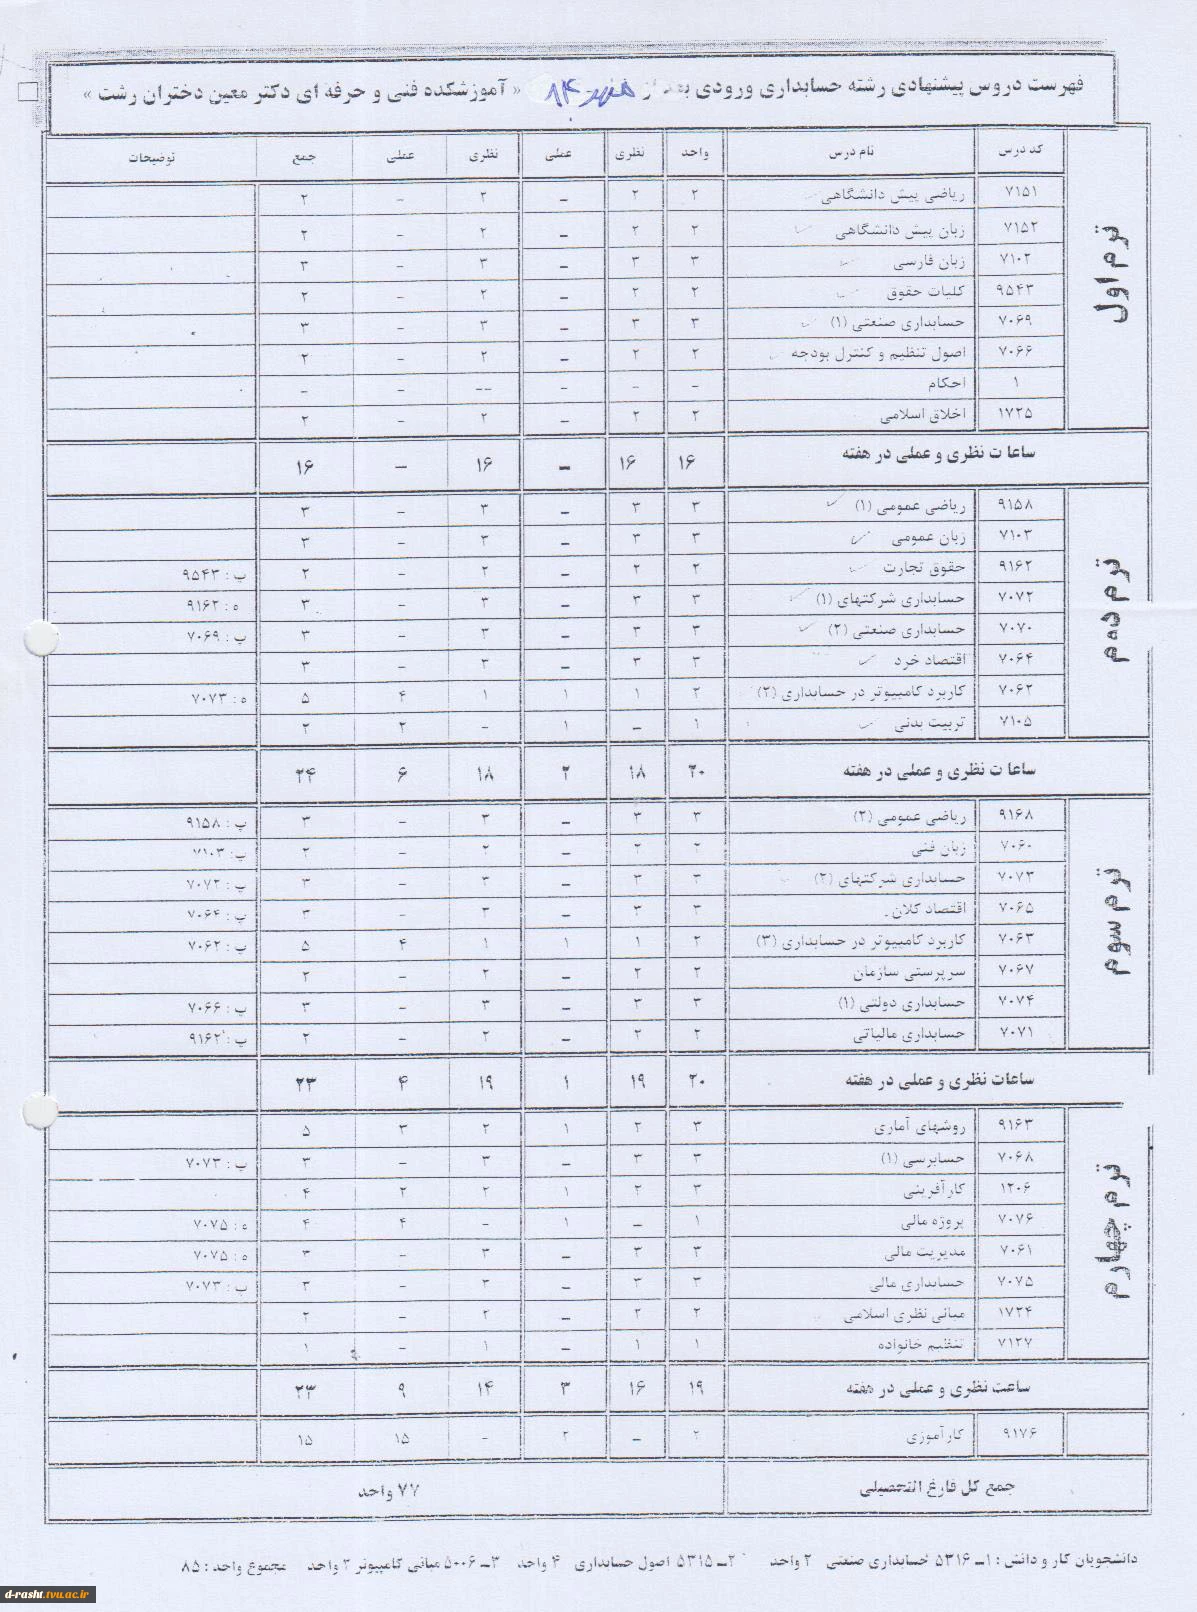 فهرست دروس پیشنهادی رشته حسابداری ورودی بعد از مهر ۸۴ « آموزشکده فنی و حرفه ای دکتر معین دختران رشت »
کد درس نام درس واحد نظری عملی نظری عملی جمع توضیحات
ترم اول
۷۱۵۱ ریاضی پیش دانشگاهی ۲ ۲ – ۲ – ۲
۷۱۵۲ زبان پیش دانشگاهی ۲ ۲ – ۲ – ۲
۷۱۰۲ زبان فارسی ۳ ۳ – ۳ – ۳
۹۵۴۳ کلیات حقوق ۲ ۲ – ۲ – ۲
۷۰۶۹ حسابداری صنعتی (۱) ۳ ۳ – ۳ – ۳
۷۰۶۶ اصول تنظیم و کنترل بودجه ۲ ۲ – ۲ – ۲
۱ احکام – – – -- – –
۱۷۲۵ اخلاق اسلامی ۲ ۲ – ۲ – ۲
ساعات نظری و عملی در هفته ۱۶ ۱۶ – ۱۶ – ۱۶
ترم دوم
۹۱۵۸ ریاضی عمومی (۱) ۳ ۳ – ۳ – ۳
۷۱۰۳ زبان عمومی ۳ ۳ – ۳ – ۳
۹۱۶۲ حقوق تجارت ۲ ۲ – ۲ – ۲ پ : ۹۵۴۳
۷۰۷۲ حسابداری شرکتهای (۱) ۳ ۳ – ۳ – ۳ ه : ۹۱۶۲
۷۰۷۰ حسابداری صنعتی (۲) ۳ ۳ – ۳ – ۳ پ : ۷۰۶۹
۷۰۶۴ اقتصاد خرد ۳ ۳ – ۳ – ۳
۷۰۶۲ کاربرد کامپیوتر در حسابداری (۲) ۲ ۱ ۱ ۱ ۴ ۵ ه : ۷۰۷۳
۷۱۰۵ تربیت بدنی ۱ – ۱ – ۲ ۲
ساعات نظری و عملی در هفته ۲۰ ۱۸ ۲ ۱۸ ۶ ۲۴
ترم سوم
۹۱۶۸ ریاضی عمومی (۲) ۳ ۳ – ۳ – ۳ پ : ۹۱۵۸
۷۰۶۰ زبان فنی ۲ ۲ – ۲ – ۲ پ : ۷۱۰۳
۷۰۷۳ حسابداری شرکتهای (۲) ۳ ۳ – ۳ – ۳ پ : ۷۰۷۲
۷۰۶۵ اقتصاد کلان ۳ ۳ – ۳ – ۳ پ : ۷۰۶۴
۷۰۶۳ کاربرد کامپیوتر در حسابداری (۳) ۲ ۱ ۱ ۱ ۴ ۵ پ : ۷۰۶۲
۷۰۶۷ سرپرستی سازمان ۲ ۲ – ۲ – ۲
۷۰۷۴ حسابداری دولتی (۱) ۳ ۳ – ۳ – ۳ پ : ۷۰۶۶
۷۰۷۱ حسابداری مالیاتی ۲ ۲ – ۲ – ۲ پ : ۹۱۶۲
ساعات نظری و عملی در هفته ۲۰ ۱۹ ۱ ۱۹ ۴ ۲۳
ترم چهارم
۹۱۶۳ روشهای آماری ۳ ۲ ۱ ۲ ۳ ۵
۷۰۶۸ حسابرسی (۱) ۳ ۳ – ۳ – ۳ پ : ۷۰۷۳
۱۲۰۶ کارآفرینی ۳ ۲ ۱ ۲ ۲ ۴
۷۰۷۶ پروژه مالی ۱ – ۱ – ۴ ۴ ه : ۷۰۷۵
۷۰۶۱ مدیریت مالی ۳ ۳ – ۳ – ۳ ه : ۷۰۷۵
۷۰۷۵ حسابداری مالی ۳ ۳ – ۳ – ۳ پ : ۷۰۷۳
۱۷۲۴ مبانی نظری اسلامی ۲ ۲ – ۲ – ۲
۷۱۲۷ تنظیم خانواده ۱ ۱ – ۱ – ۱
ساعت نظری و عملی در هفته ۱۹ ۱۶ ۳ ۱۴ ۹ ۲۳
۹۱۷۶ کارآموزی ۲ – ۲ – ۱۵ ۱۵
جمع کل فارغ التحصیلی ۷۷ واحد
دانشجویان کار و دانش : ۱ـ ۵۳۱۶ حسابداری صنعتی ۲ واحد ۲ـ ۵۳۱۵ اصول حسابداری ۴ واحد ۳ـ ۵۰۰۶ مبانی کامپیوتر ۲ واحد مجموع واحد : ۸۵
d-rasht.tvu.ac.ir